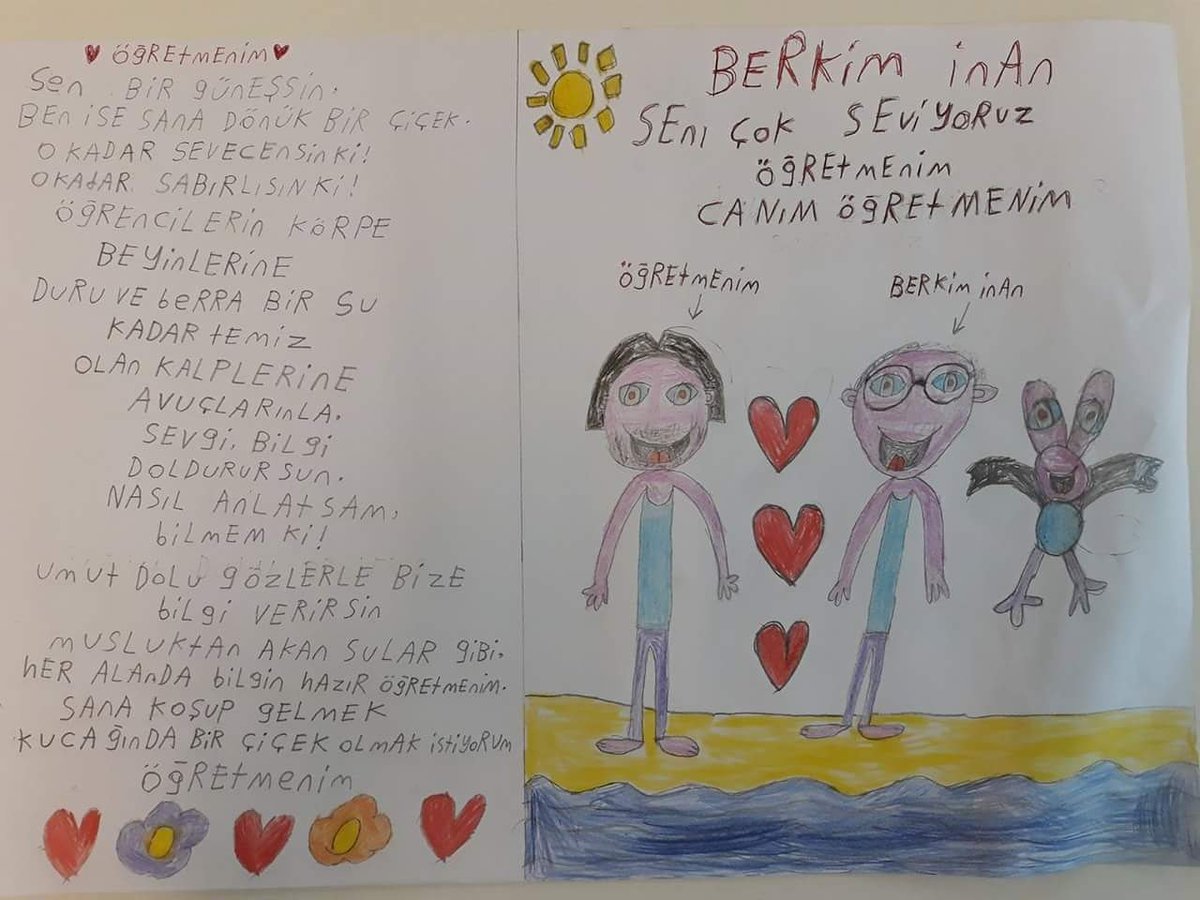 ÖĞREtmEnim
Sen BiR GÜNEŞSin.
BEN iSE SANA DÖNÜK BiR ÇiÇEK.
O KADAR SEVECENSinKi!
O KAdAR SABIRLISIN Ki!
ÖĞRENCiLERin KÖRPE
BEYinLERiNE
DURU VE bERRA BiR SU
KADAR tEMiZ
OLAn KALPLERiNE
AVUÇLARInLA.
SEVgi, BiLgi
DOLDURURSUn.
NASIL AnLAtSAM,
biLMEM Ki!
UmUt DOLU gÖZLERLE BiZE
biLgi VERiRSin
mUSLUKtAN AKAn SULAR gibi.
hER ALAnDA biLgin hAZIR ÖğREtmEnim.
SANA KOŞUP gELMEK
KUCAĞINDA BiR ÇiÇEK OLMAK iStiYORUM
ÖğREtmenim
BERKim inAn
SEnI ÇOK SEViYORUZ
ÖğREtmEnim
CANIM ÖğREtMENiM
ÖğREtmEnim
BERKim inAn